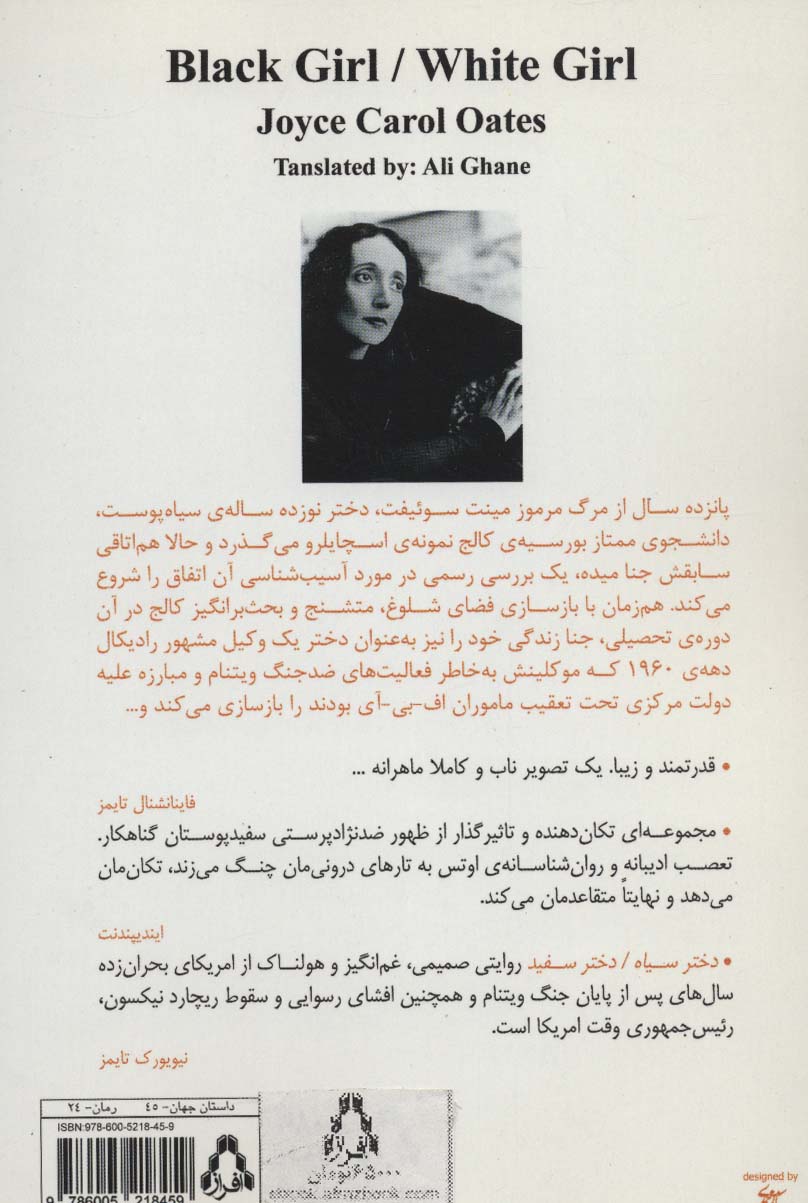 Black Girl / White Girl
Joyce Carol Oates
Tanslated by: Ali Ghane
پانزده سال از مرگ مرموز مینت سوئیفت، دختر نوزده ساله‌ی سیاه‌پوست،
دانشجوی ممتاز بورسیه‌ی کالج نمونه‌ی اسچایلرو می‌گذرد و حالا هم‌اتاقی
سابقش جنا میده، یک بررسی رسمی در مورد آسیب‌شناسی آن اتفاق را شروع
می‌کند. هم‌زمان با بازسازی فضای شلوغ، متشنج و بحث‌برانگیز کالج در آن
دوره‌ی تحصیلی، جنا زندگی خود را نیز به‌عنوان دختر یک وکیل مشهور رادیکال
دهه‌ی ۱۹۶۰ که موکلینش به‌خاطر فعالیت‌های ضدجنگ ویتنام و مبارزه علیه
دولت مرکزی تحت تعقیب ماموران اف-بی-آی بودند را بازسازی می‌کند و...
• قدرتمند و زیبا. یک تصویر ناب و کاملا ماهرانه ...
فاینانشنال تایمز
• مجموعه‌ای تکان‌دهنده و تاثیرگذار از ظهور ضدنژادپرستی سفیدپوستان گناهکار.
تعصب ادیبانه و روان‌شناسانه‌ی اوتس به تارهای درونی‌مان چنگ می‌زند، تکان‌مان
می‌دهد و نهایتاً متقاعدمان می‌کند.
ایندیپندنت
• دختر سیاه / دختر سفید روایتی صمیمی، غم‌انگیز و هولناک از امریکای بحران‌زده
سال‌های پس از پایان جنگ ویتنام و همچنین افشای رسوایی و سقوط ریچارد نیکسون،
رئیس‌جمهوری وقت امریکا است.
نیویورک تایمز
داستان جهان- ۴۵ رمان- ۲۴
ISBN:978-600-5218-45-9
9 786005 218459
افراز
افراز
۶۵۰۰۰ تومان
designed by